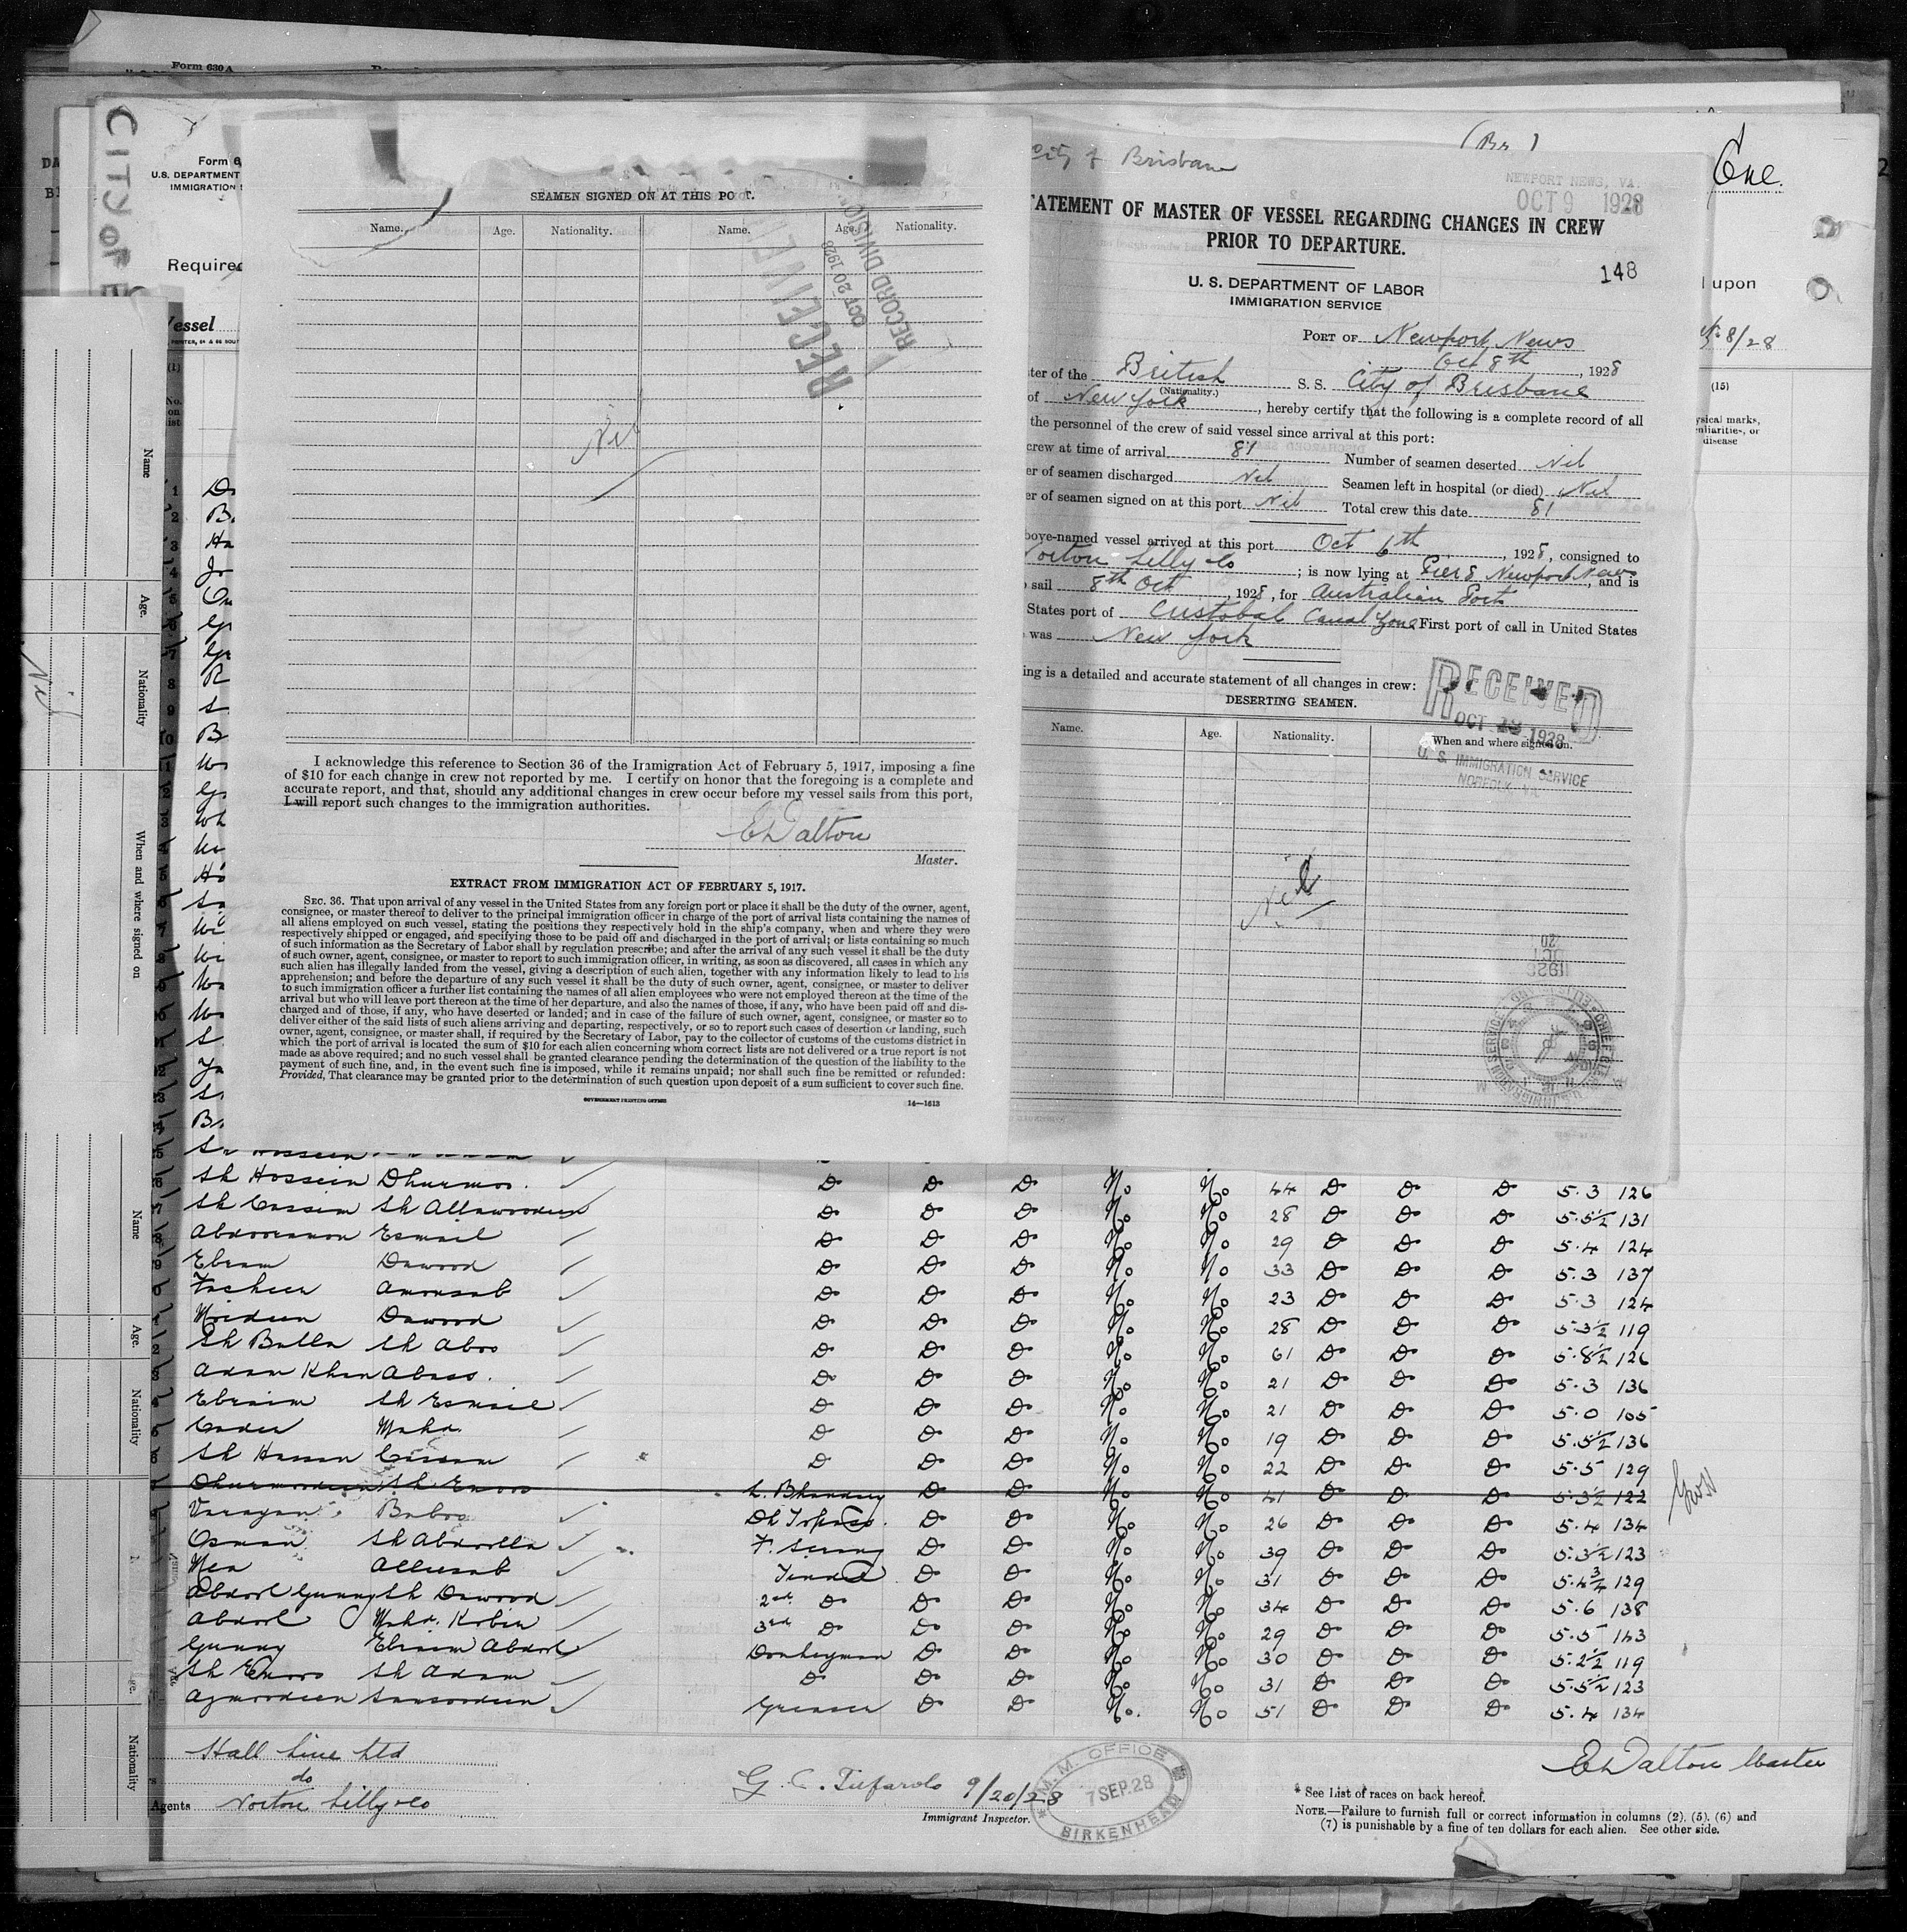 Form 630 A
CITY OF B
Form 6
U.S. DEPARTMENT
IMMIGRATION S
Required
Vessel
(1)
No.
on
list
SEAMEN SIGNED ON AT THIS PORT.
Name. Age. Nationality. Name. Age. Nationality.
RECEIVED
OCT 20 1928
RECORD DIVISION
Nil
I acknowledge this reference to Section 36 of the Immigration Act of February 5, 1917, imposing a fine
of $10 for each change in crew not reported by me. I certify on honor that the foregoing is a complete and
accurate report, and that, should any additional changes in crew occur before my vessel sails from this port,
I will report such changes to the immigration authorities.
E Dalton
Master.
EXTRACT FROM IMMIGRATION ACT OF FEBRUARY 5, 1917.
SEC. 36. That upon arrival of any vessel in the United States from any foreign port or place it shall be the duty of the owner, agent,
consignee, or master thereof to deliver to the principal immigration officer in charge of the port of arrival lists containing the names of
all aliens employed on such vessel, stating the positions they respectively hold in the ship's company, when and where they were
respectively shipped or engaged, and specifying those to be paid off and discharged in the port of arrival; or lists containing so much
of such information as the Secretary of Labor shall by regulation prescribe; and after the arrival of any such vessel it shall be the duty
of such owner, agent, consignee, or master to report to such immigration officer, in writing, as soon as discovered, all cases in which any
such alien has illegally landed from the vessel, giving a description of such alien, together with any information likely to lead to his
apprehension; and before the departure of any such vessel it shall be the duty of such owner, agent, consignee, or master to deliver
to such immigration officer a further list containing the names of all alien employees who were not employed thereon at the time of the
arrival but who will leave port thereon at the time of her departure, and also the names of those, if any, who have been paid off and dis-
charged and of those, if any, who have deserted or landed; and in case of the failure of such owner, agent, consignee, or master so to
deliver either of the said lists of such aliens arriving and departing, respectively, or so to report such cases of desertion or landing, such
owner, agent, consignee, or master shall, if required by the Secretary of Labor, pay to the collector of customs of the customs district in
which the port of arrival is located the sum of $10 for each alien concerning whom correct lists are not delivered or a true report is not
made as above required; and no such vessel shall be granted clearance pending the determination of the question of the liability to the
payment of such fine, and, in the event such fine is imposed, while it remains unpaid; nor shall such fine be remitted or refunded:
Provided, That clearance may be granted prior to the determination of such question upon deposit of a sum sufficient to cover such fine.
GOVERNMENT PRINTING OFFICE 14—1613
City of Brisbane
(Br)
One.
NEWPORT NEWS, VA.
OCT 9 1928
TATEMENT OF MASTER OF VESSEL REGARDING CHANGES IN CREW
PRIOR TO DEPARTURE.
148
U. S. DEPARTMENT OF LABOR
IMMIGRATION SERVICE
PORT OF Newport News
Oct 8th, 1928
ter of the British S. S. City of Brisbane
(Nationality.)
of New York, hereby certify that the following is a complete record of all
the personnel of the crew of said vessel since arrival at this port:
crew at time of arrival 81 Number of seamen deserted Nil
er of seamen discharged Nil Seamen left in hospital (or died) Nil
er of seamen signed on at this port Nil Total crew this date 81
bove-named vessel arrived at this port Oct 6th, 1928, consigned to
Norton Lilly & Co; is now lying at Pier 8 Newport News, and is
sail 8th Oct, 1928, for Australian Ports
States port of Cristobal Canal Zone First port of call in United States
was New York
ing is a detailed and accurate statement of all changes in crew:
DESERTING SEAMEN.
RECEIVED
OCT 1928
U. S. IMMIGRATION SERVICE
NORFOLK, VA.
Name. Age. Nationality. When and where signed on.
Nil
upon
8/28
(15)
ysical marks,
culiarities, or
disease
Name
Age.
Nationality
When and where signed on
Nil
Name
Age.
Nationality
Nationality
Sh Hossein Dhurmoo. Do Do Do No No 44 Do Do Do 5.3 126
Sh Cassim Sh Allawoodeen Do Do Do No No 28 Do Do Do 5.5½ 131
Abdorramon Esmail Do Do Do No No 29 Do Do Do 5.4 124
Ebram Dawood Do Do Do No No 33 Do Do Do 5.3 137
Fackeer Amonsab Do Do Do No No 23 Do Do Do 5.3 124
Moideen Dawood Do Do Do No No 28 Do Do Do 5.3½ 119
Sh Balla Sh Aboo Do Do Do No No 61 Do Do Do 5.8½ 126
Adam Khan Abass. Do Do Do No No 21 Do Do Do 5.3 136
Ebraim Sh Esmail Do Do Do No No 21 Do Do Do 5.0 105
Cader Mahd. Do Do Do No No 19 Do Do Do 5.5½ 136
Sh Hassan Cassam Do Do Do No No 22 Do Do Do 5.5 129
Dhurmoodeen Sh Emoo L. Bhandary Do Do No No 41 Do Do Do 5.3½ 122
Varayan Baboo Dk Topass. Do Do No No 26 Do Do Do 5.4 134
Osman Sh Abdoolla F. Serang Do Do No No 39 Do Do Do 5.3½ 123
Mea Alliesab Tindal Do Do No No 31 Do Do Do 5.4¾ 129
Abdool Gunny Sh Dawood 2nd Do Do Do No No 34 Do Do Do 5.6 138
Abdool Mahd. Kobin 3rd Do Do Do No No 29 Do Do Do 5.5 143
Gunny Ebraim Abdool Donkeyman Do Do No No 30 Do Do Do 5.2½ 119
Sh Emoo Sh Adam Do Do Do No No 31 Do Do Do 5.5½ 123
Azmoodeen Samsoodeen Greaser Do Do No. No 51 Do Do Do 5.4 134
Hall Line Ltd
do
Agents Norton Lilly & Co
G. C. Tufarolo 9/20/28
Immigrant Inspector.
M.M. OFFICE
7 SEP. 28
BIRKENHEAD
E Dalton Master
* See List of races on back hereof.
NOTE.—Failure to furnish full or correct information in columns (2), (5), (6) and
(7) is punishable by a fine of ten dollars for each alien. See other side.